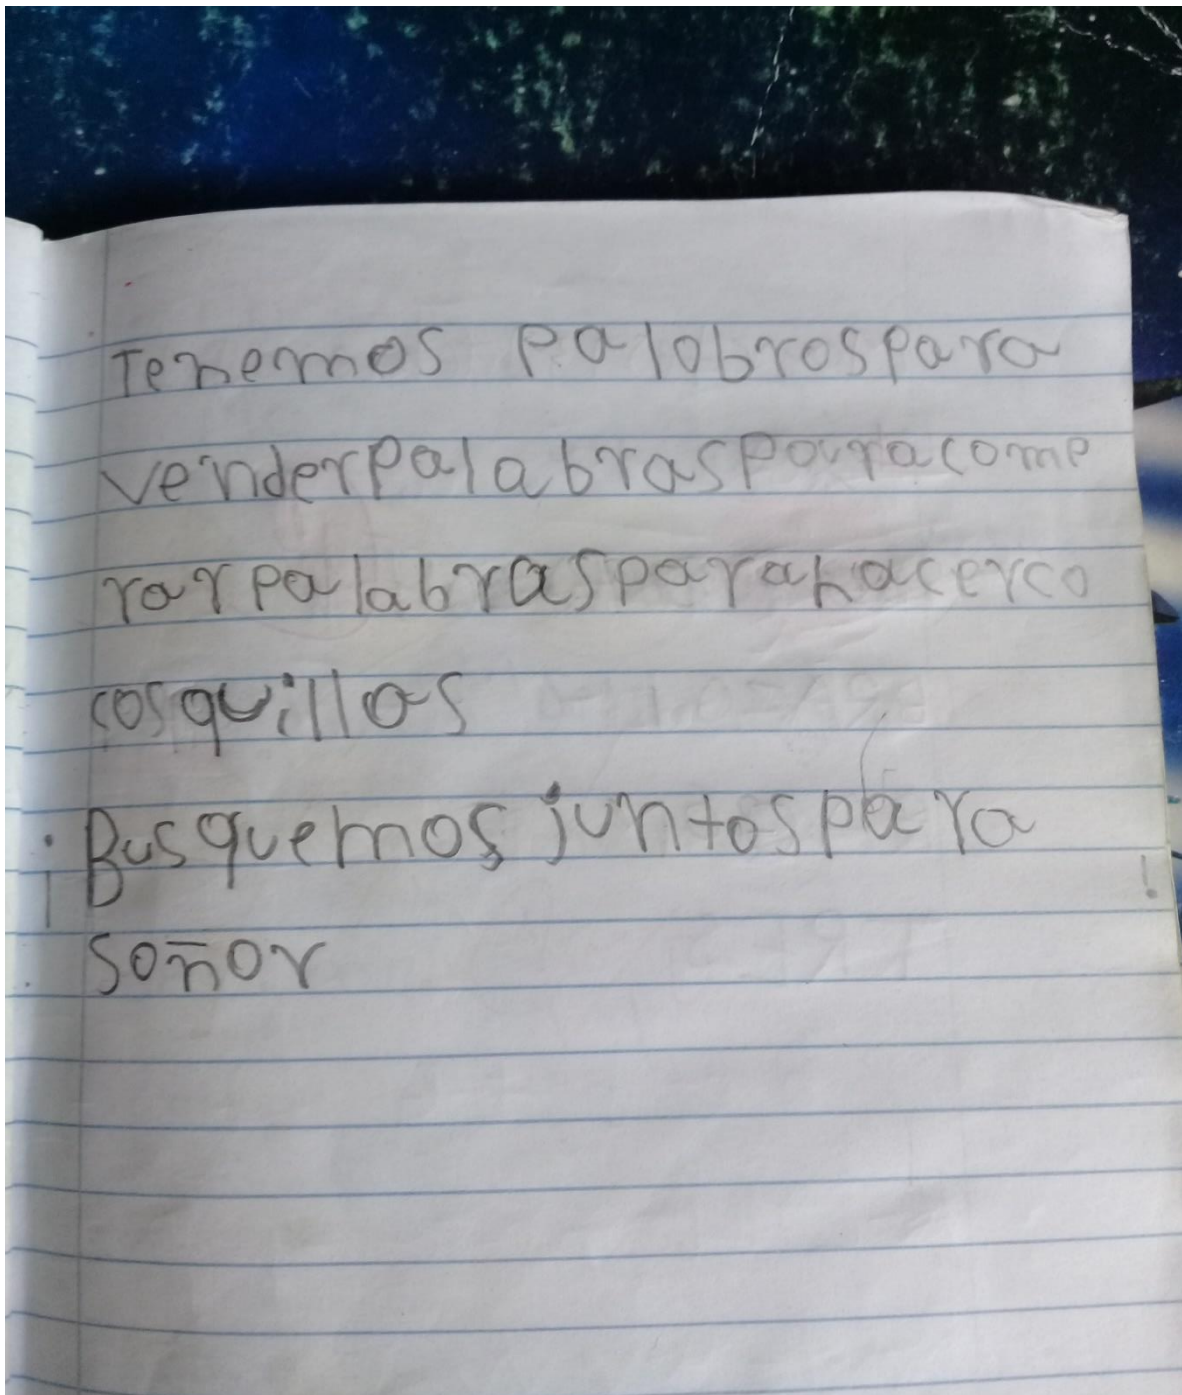 Tenemos palobrospara
venderpalabrasparacomp
rarpalabrasparahacerco
cosquillas
¡Busquemos juntospara !
soñor